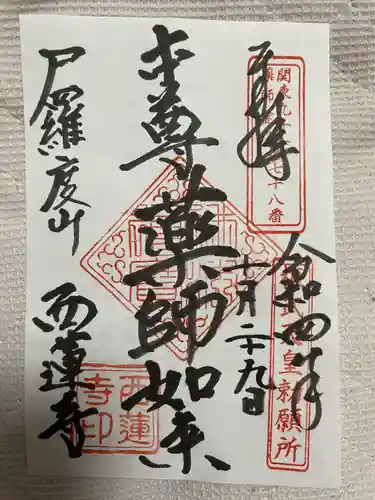 奉拝
令和四年
十月二十九日
本尊薬師如来
尸羅度山
西蓮寺
関東九十一
薬師
七十八番
武天皇勅願所
西蓮
寺印